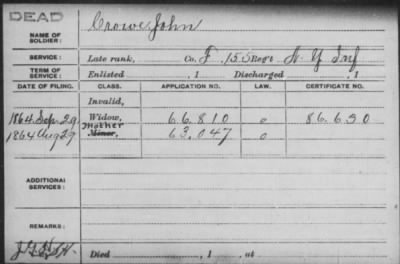 DEAD
NAME OF SOLDIER: Crowe, John
SERVICE: Late rank, Co. F, 155 Reg't N.Y. Inf
TERM OF SERVICE: Enlisted , 1 Discharged , 1
DATE OF FILING. CLASS. APPLICATION NO. LAW. CERTIFICATE NO.
Invalid,
1864 Sep 29 Widow, 66.810 o 86.630
1864 Aug 29 Mother Minor, 63.047 o
ADDITIONAL SERVICES:
REMARKS:
Died , 1 , at